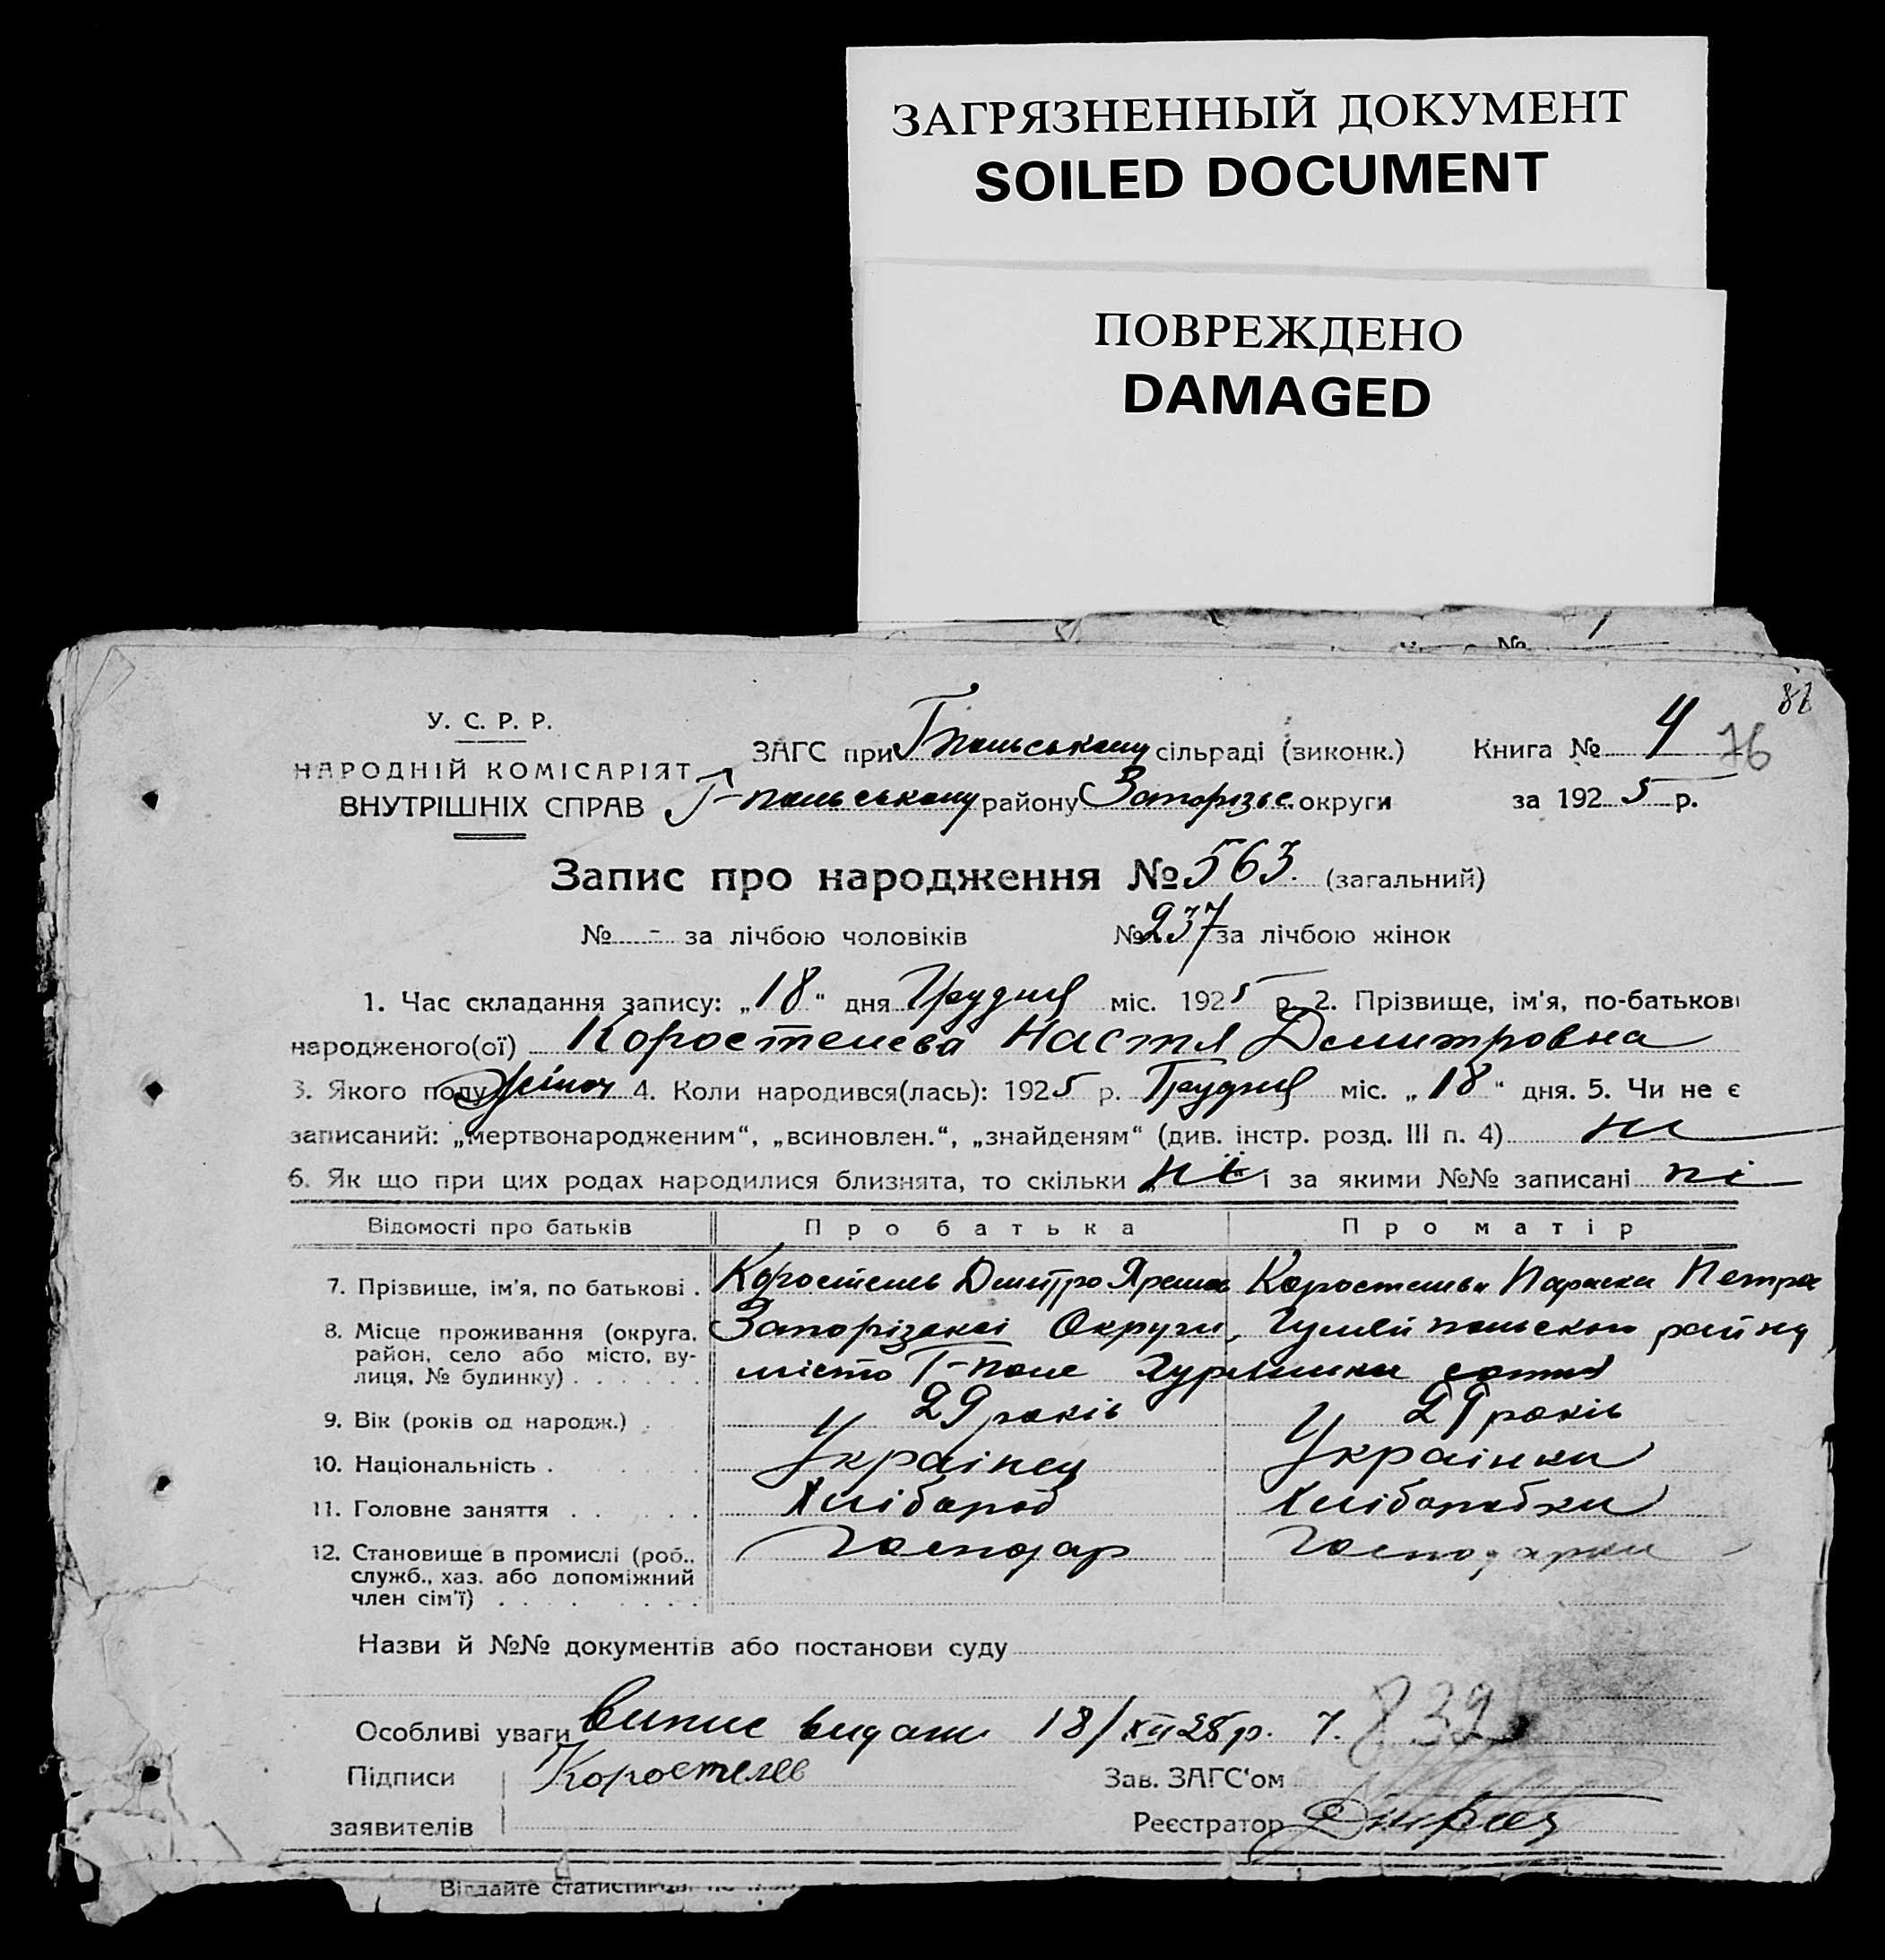 ЗАГРЯЗНЕННЫЙ ДОКУМЕНТ
SOILED DOCUMENT
ПОВРЕЖДЕНО
DAMAGED
№ 1
81
У. С. Р. Р.
НАРОДНІЙ КОМІСАРІЯТ
ВНУТРІШНІХ СПРАВ
ЗАГС при Гпольському сільраді (виконк.) Книга № 4 76
Г-польському району Запорізьк. округи за 1925 р.
Запис про народження № 563. (загальний)
№ - за лічбою чоловіків № 237 за лічбою жінок
1. Час складання запису: „18“ дня Грудня міс. 1925 р. 2. Прізвище, ім'я, по-батькові
народженого(ої) Коростелева Настя Дмитровна
3. Якого полу жіноч 4. Коли народився(лась): 1925 р. Грудня міс. „18“ дня. 5. Чи не є
записаний: „мертвонародженим“, „всиновлен.“, „знайденям“ (див. інстр. розд. III п. 4) ні
6. Як що при цих родах народилися близнята, то скільки „ні“ і за якими №№ записані ні
Відомості про батьків Про батька Про матір
7. Прізвище, ім'я, по батькові . Коростель Дмитро Коростельва Параска Петро
8. Місце проживання (округа, Запорізькоі Округи, Гуляйпольского району
район, село або місто, ву-
лиця, № будинку) . . . . . . місто Г-поле сотня
9. Вік (років од народж.) . 29 років 29 років
10. Національність . Украінец Украінка
11. Головне заняття . . . . . . Хлібороб Хліборобка
12. Становище в промислі (роб., Господар Господарка
служб., хаз. або допоміжний
член сім'ї) . . . . . . . .
Назви й №№ документів або постанови суду
Особливі уваги Випис видан 18/XII 25 р. 7. 832
Підписи Коростелев Зав. ЗАГС'ом
заявителів Реєстратор